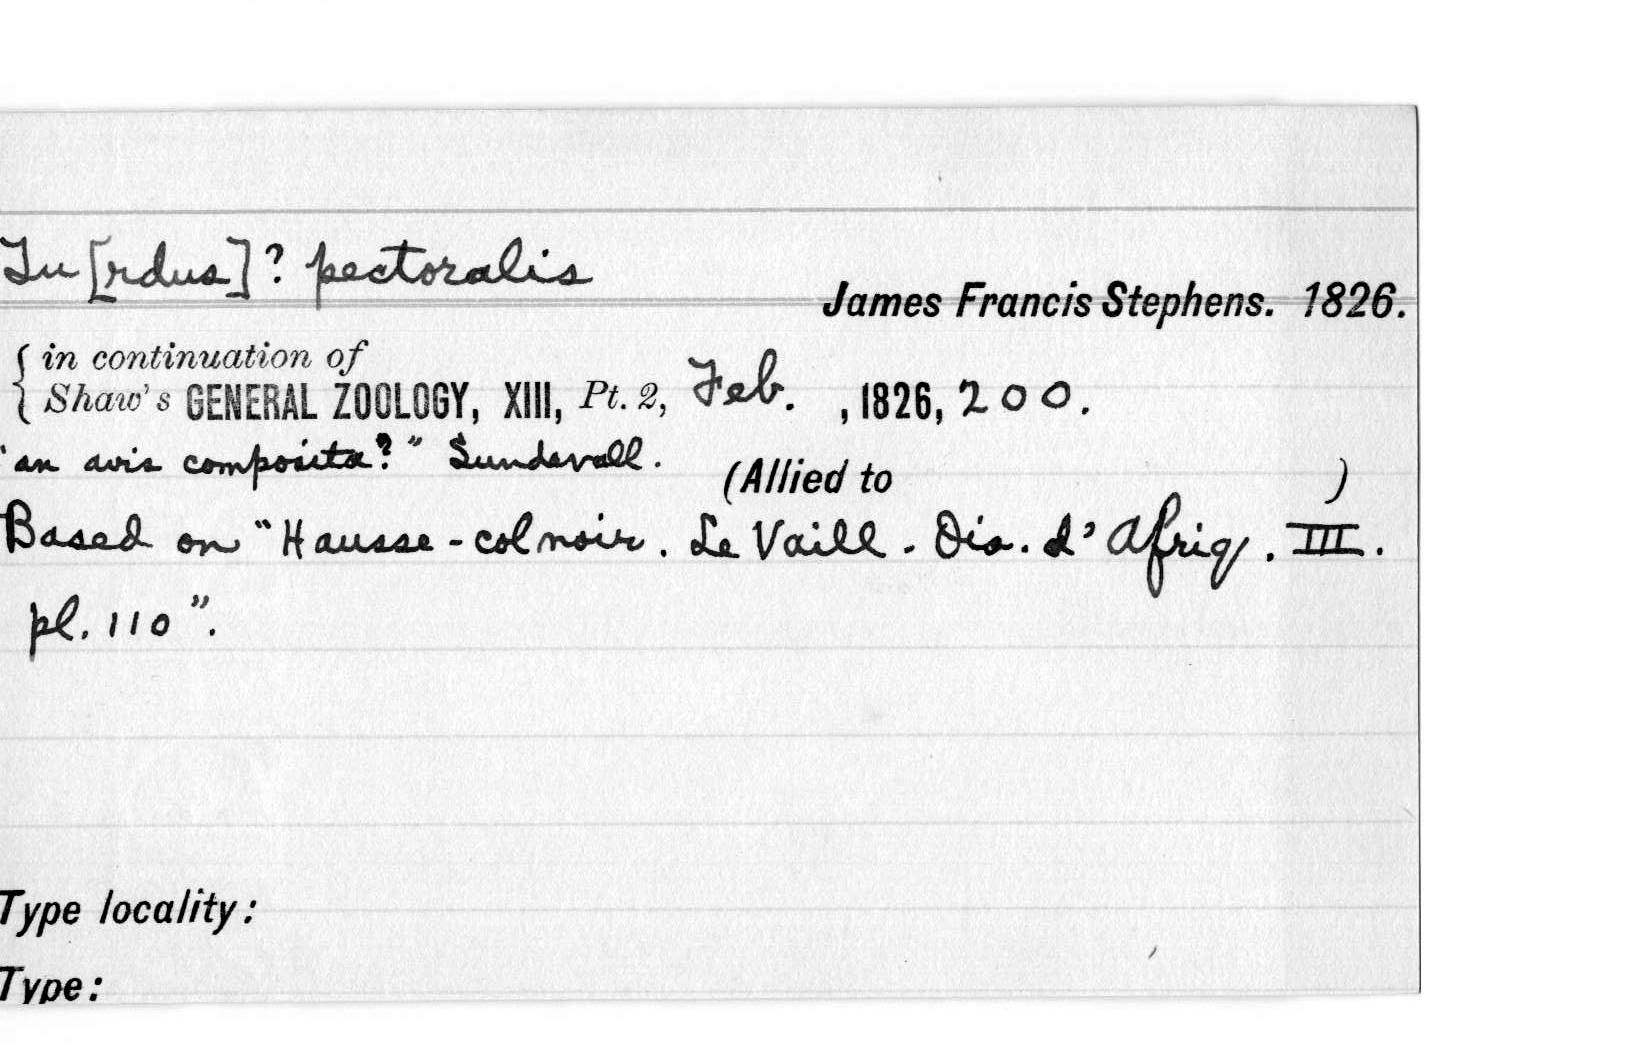 Tu[rdus]? pectoralis
James Francis Stephens. 1826.
{ in continuation of
Shaw's GENERAL ZOOLOGY, XIII, Pt. 2, Feb. , 1826, 200.
"an avis composita?" Sundevall.
(Allied to )
Based on "Hausse-col noir. Le Vaill. Ois. d'Afriq. III.
pl. 110".
Type locality:
Type: